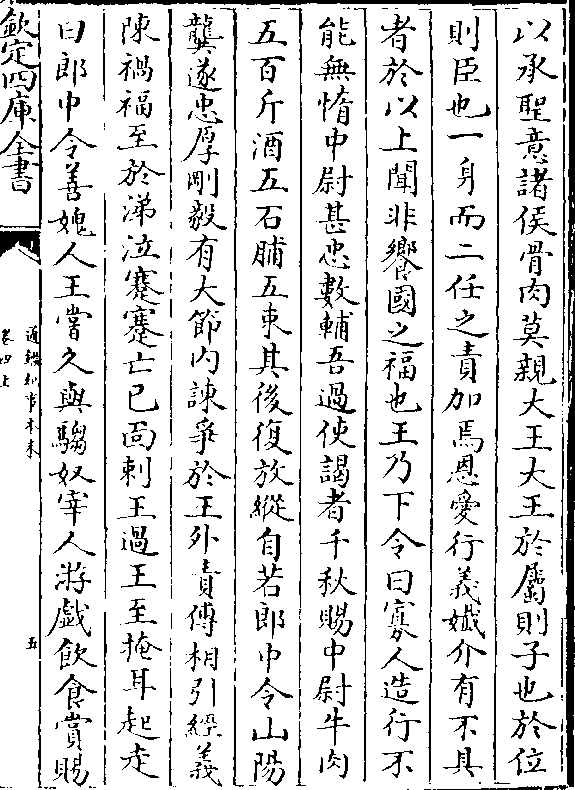 以承聖意諸侯骨肉莫親大王大王於屬則子也於位
則臣也一身而二任之責加焉恩愛行義孅介有不具
者於以上聞非饗國之福也王乃下令曰寡人造行不
能無惰中尉甚忠數輔吾過使謁者千秋賜中尉牛肉
五百斤酒五石脯五束其後復放縱自若郎中令山陽
龔遂忠厚剛毅有大節内諫爭於王外責傅相引經義
陳禍福至於涕泣蹇蹇亡已面刺王過王至掩耳起走
曰郎中令善媿人王嘗久與騶奴宰人游戯飲食賞賜
欽定四庫全書
通鑑紀事本末
卷四上
五